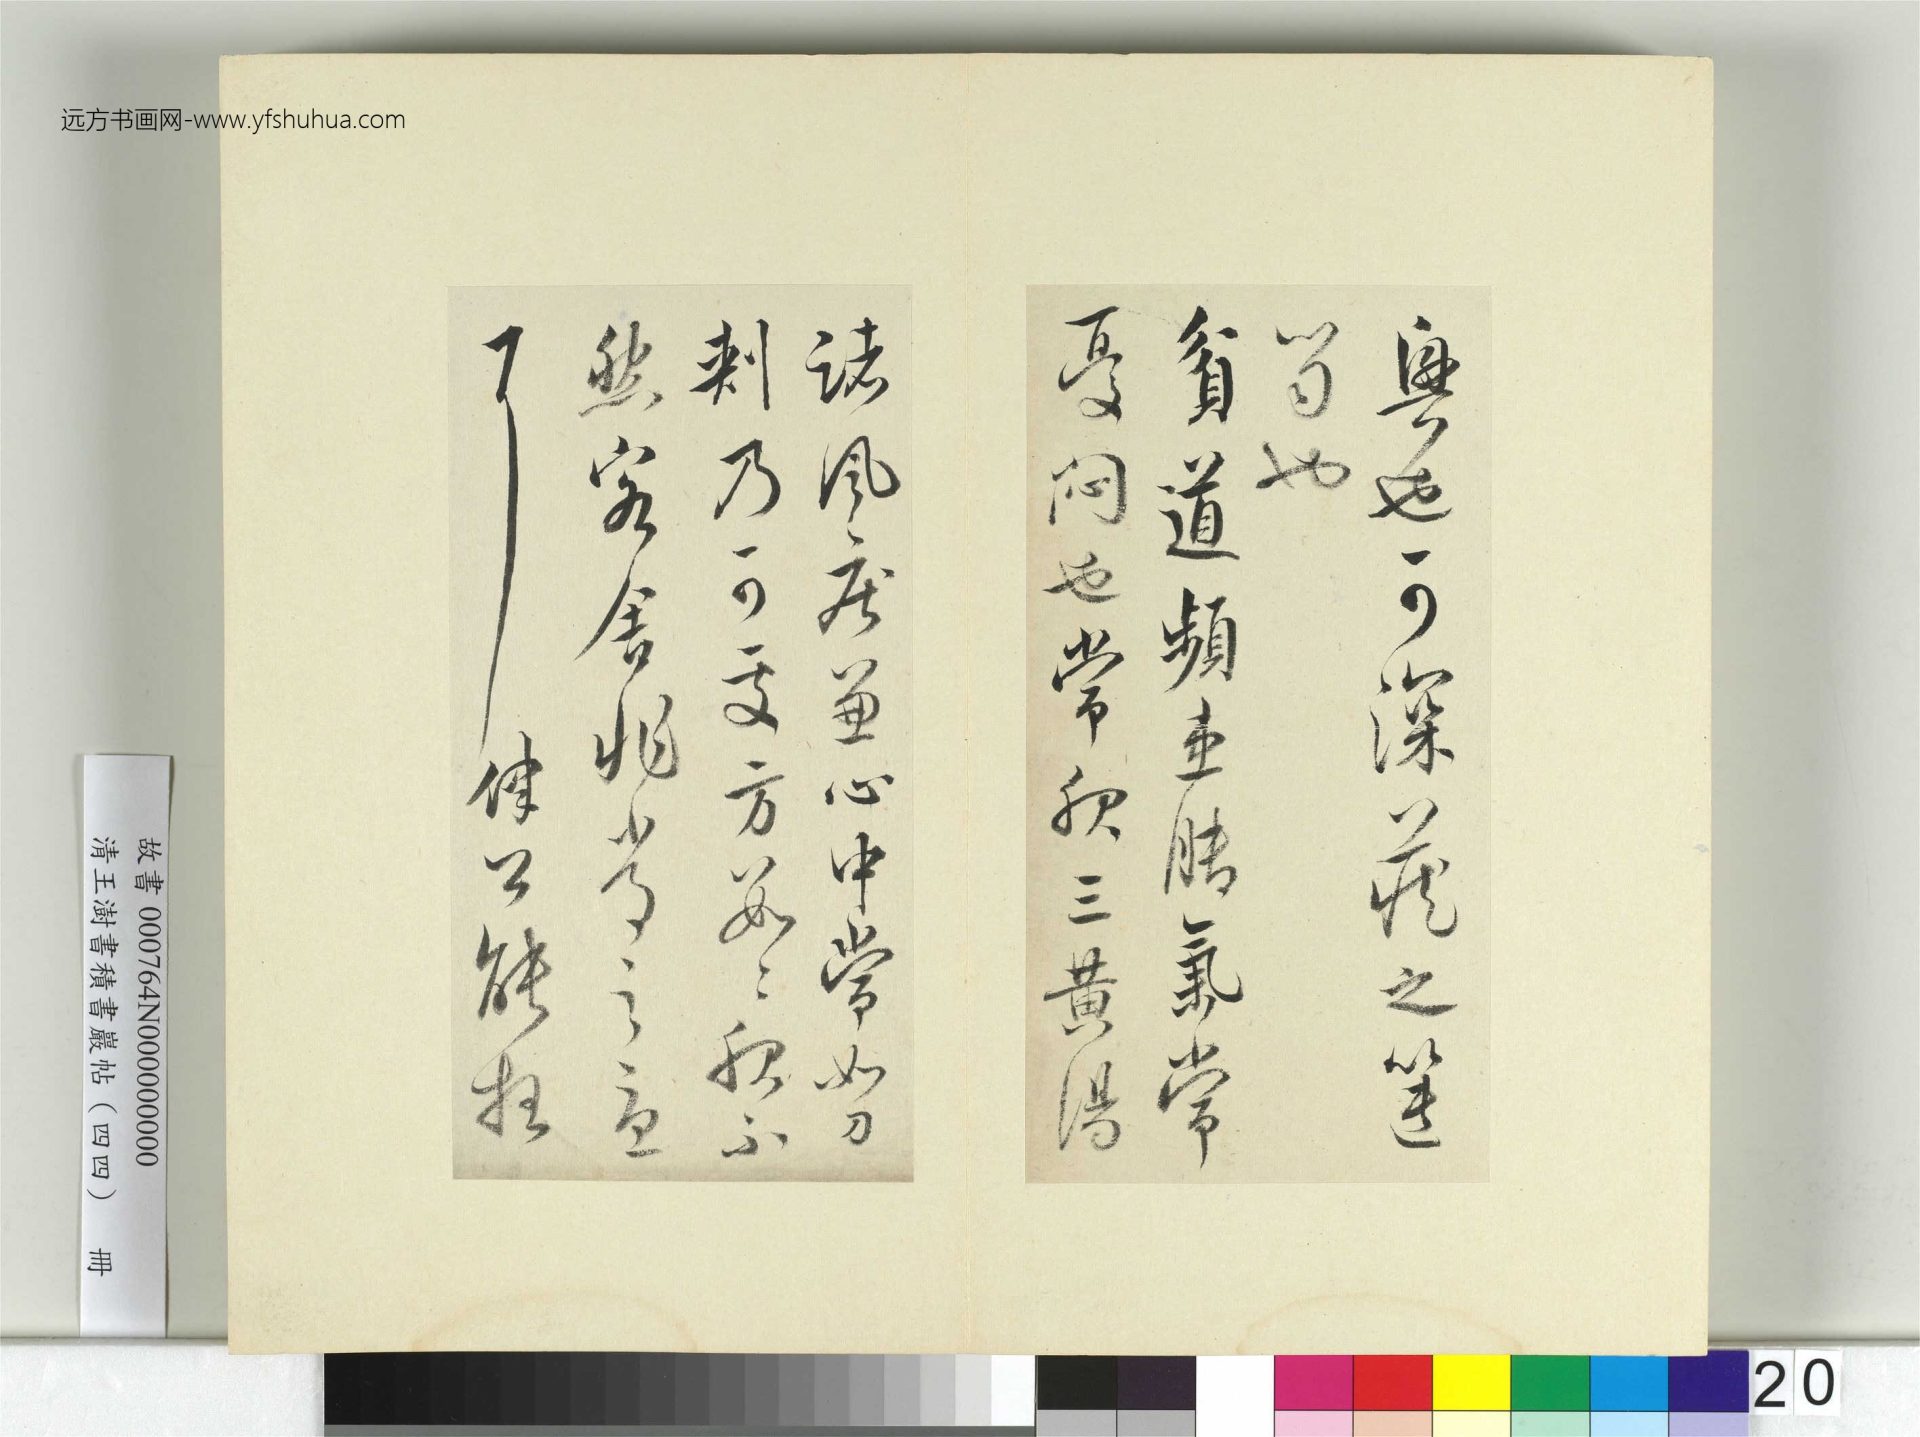 远方书画网-www.yfshuhua.com
奧也可深藏之篋
笥也
貧道頻患腳氣常
憂悶也常服三黃湯
諸風疾兼心中常如刀
刺乃可處方數數服不
然客舍非常之憂
耳律公能枉
故書 000764N000000000
清王澍書積書巖帖（四四） 冊
20